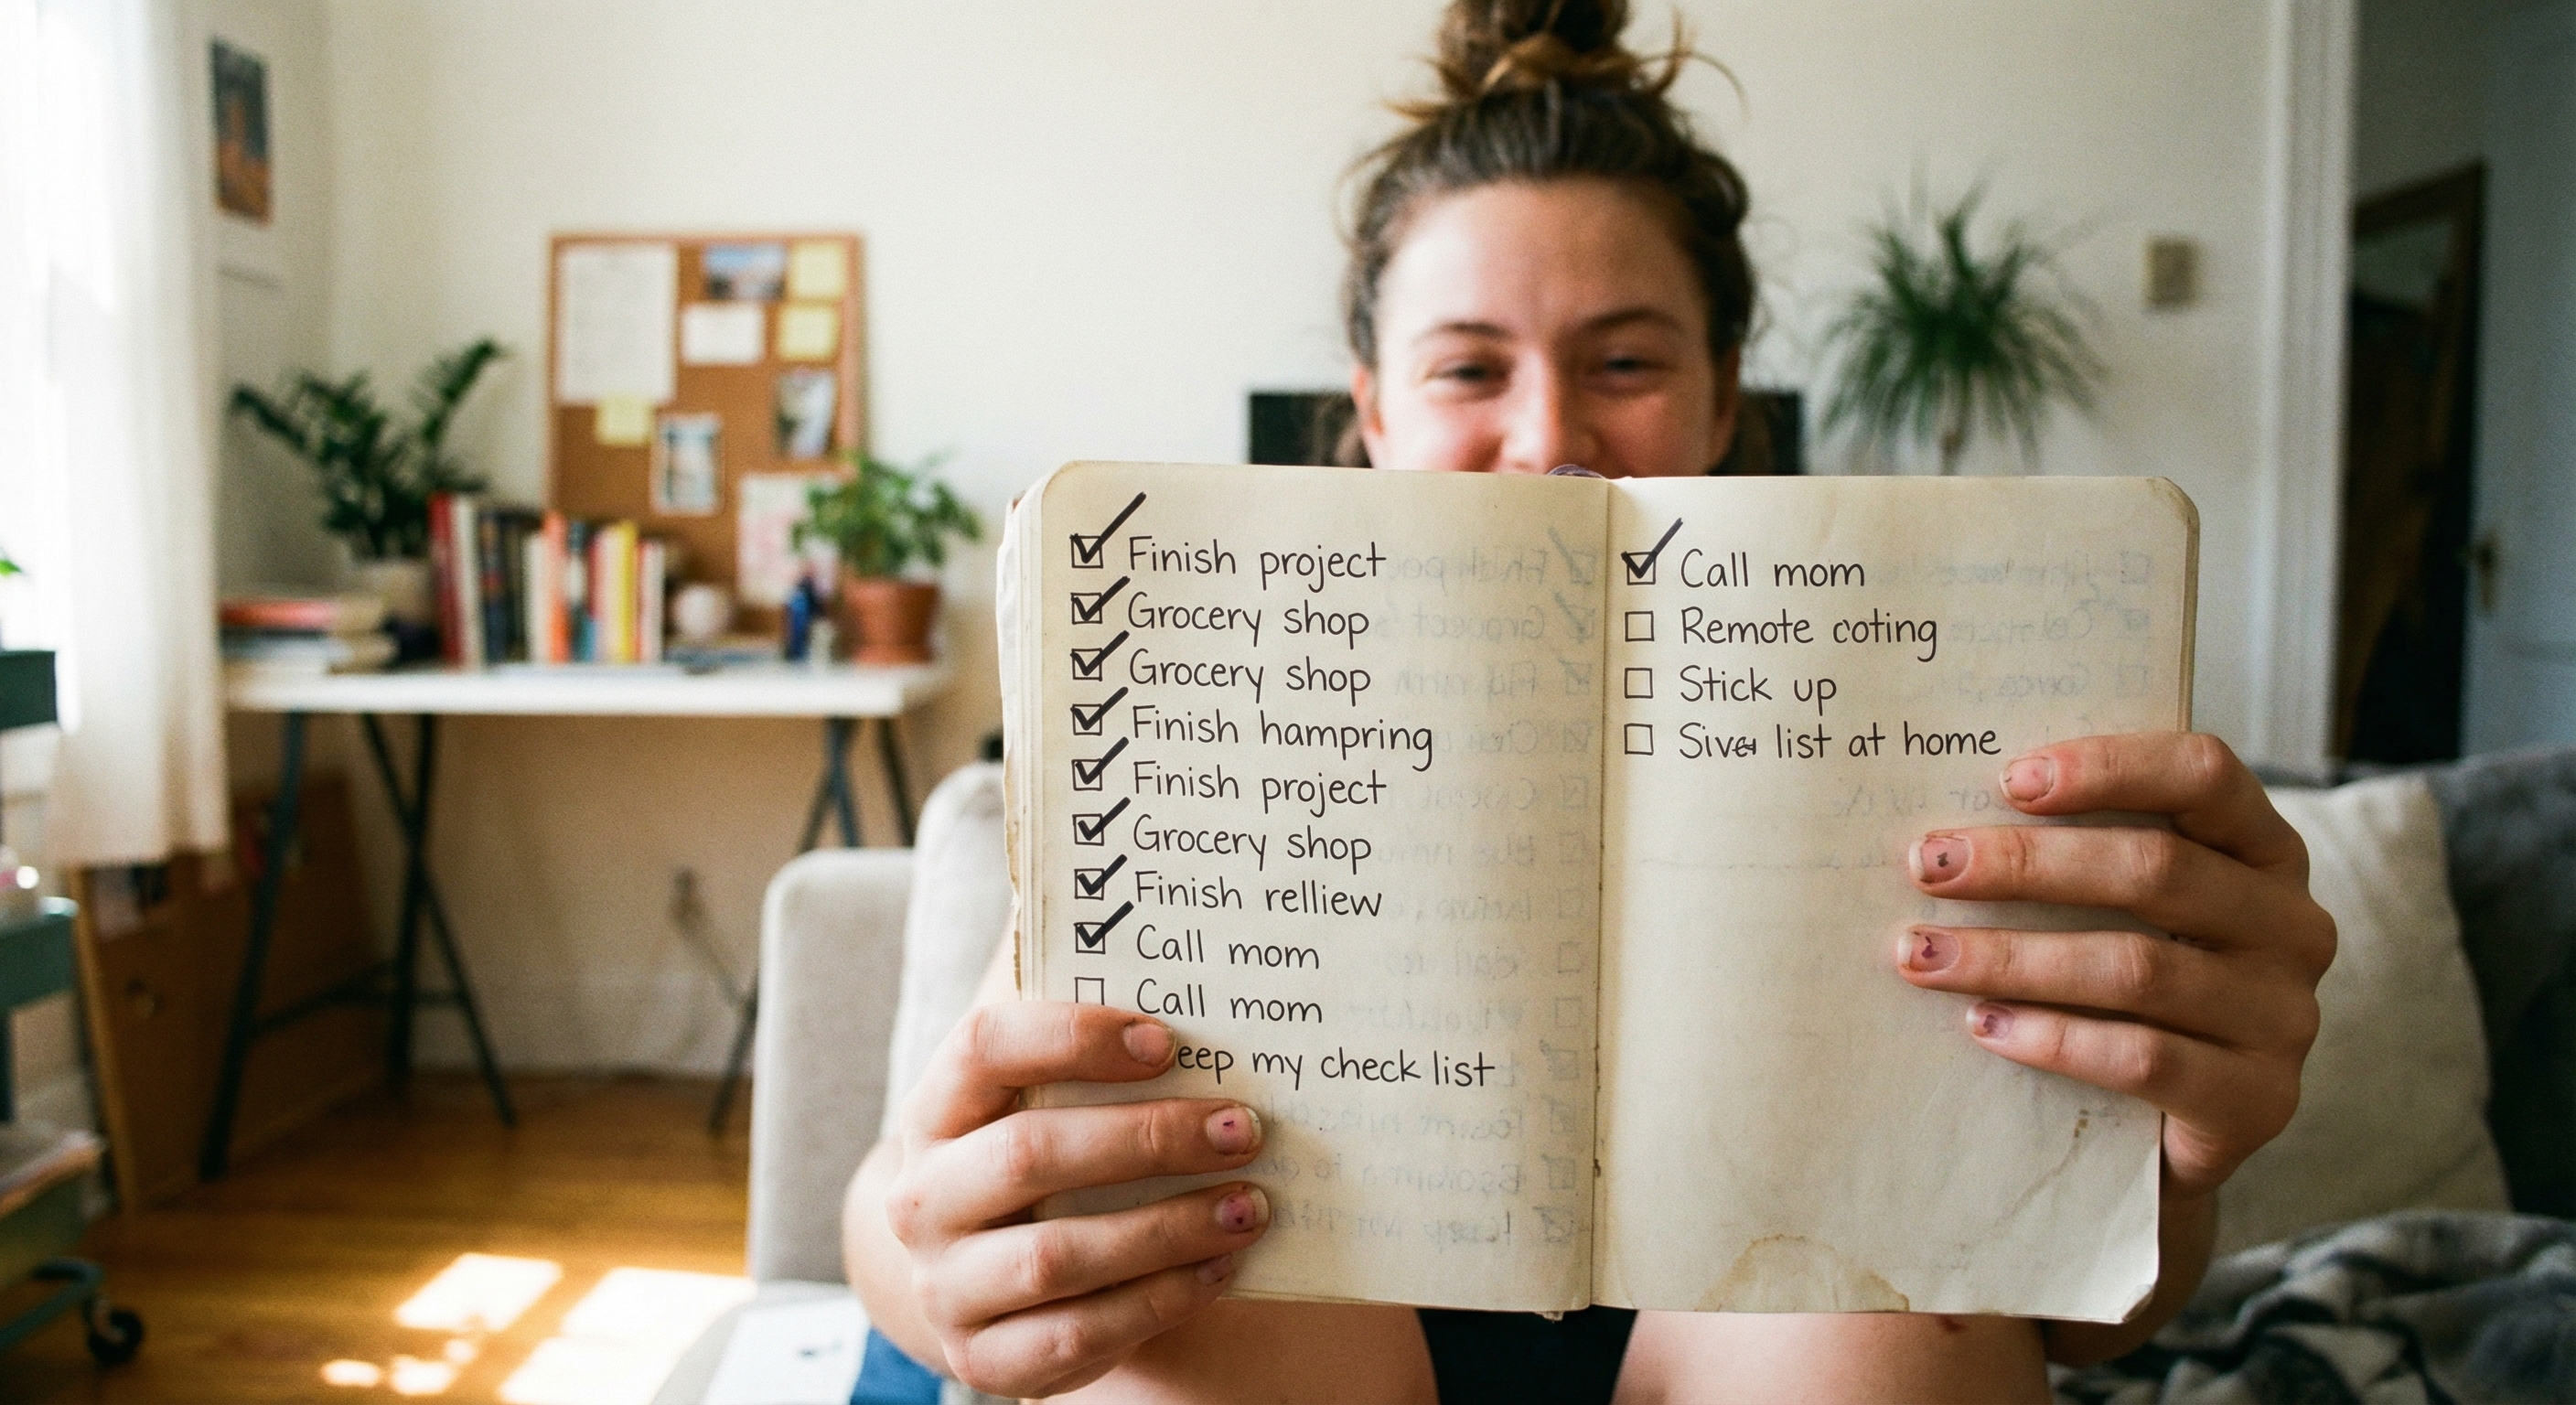 Finish project
Grocery shop
Grocery shop
Finish hampring
Finish project
Grocery shop
Finish relliew
Call mom
Call mom
eep my check list
Call mom
Remote coting
Stick up
list at home